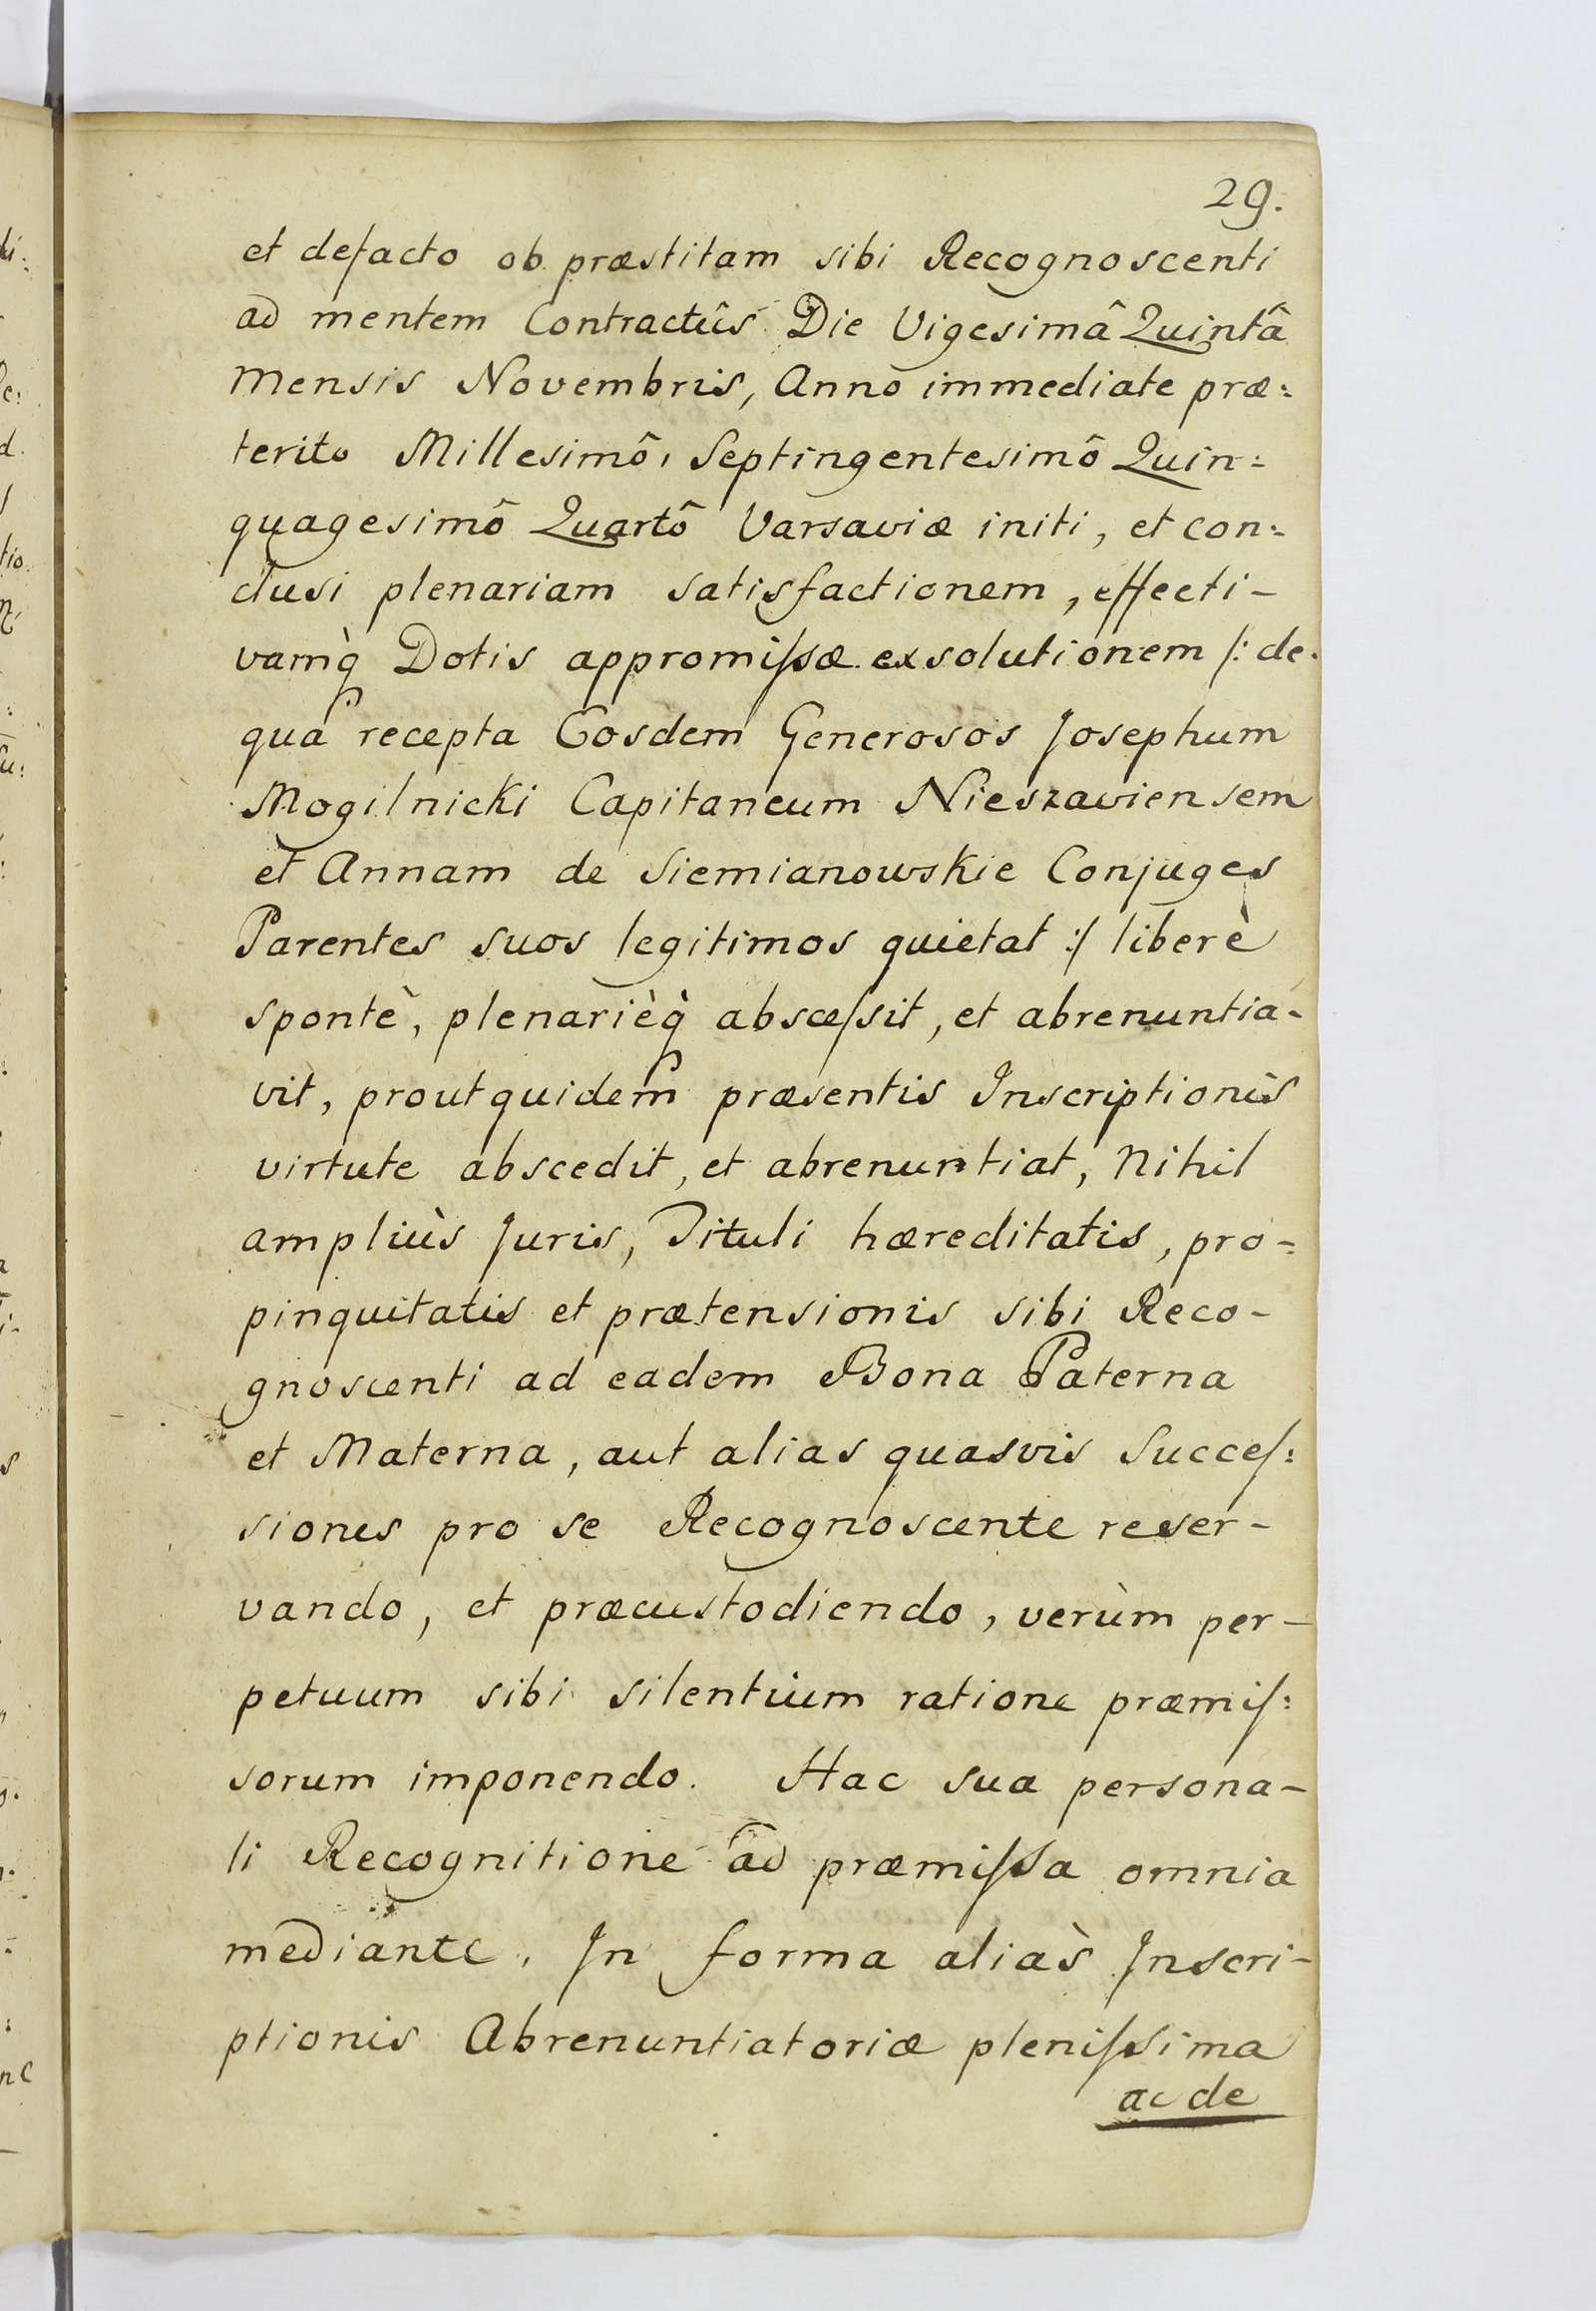 29.
et defacto ob præstitam sibi Recognoscenti
ad mentem Contractûs Die Vigesimâ Quintâ
Mensis Novembris, Anno immediate præ:
terito Millesimô, Septingentesimô Quin:
quagesimô Quartô Varsaviæ initi, et con:
clusi plenariam satisfactionem, effecti-
vamq̀ Dotis appromiſsæ exsolutionem /: de
qua recepta Eosdem Generosos Josephum
Mogilnicki Capitaneum Nieszaviensem
et Annam de Siemianowskie Conjuges
Parentes suos legitimos quietat :/ liberè
spontè, plenarièq̀ absceſsit, et abrenuntia-
vit, prout quidem præsentis Inscriptionis
virtute abscedit, et abrenuntiat, Nihil
ampliùs Juris, Tituli hæreditatis, pro-
pinquitatis et prætensionis sibi Reco-
gnoscenti ad eadem Bona Paterna
et Materna, aut alias quasvis Succeſ:
siones pro se Recognoscente reser-
vando, et præcustodiendo, verùm per-
petuum sibi silentium ratione præmiſ:
sorum imponendo. Hac sua persona-
li Recognitione ad præmiſsa omnia
mediante. In forma aliàs Inscri-
ptionis Abrenuntiatoriæ pleniſsima
ac de